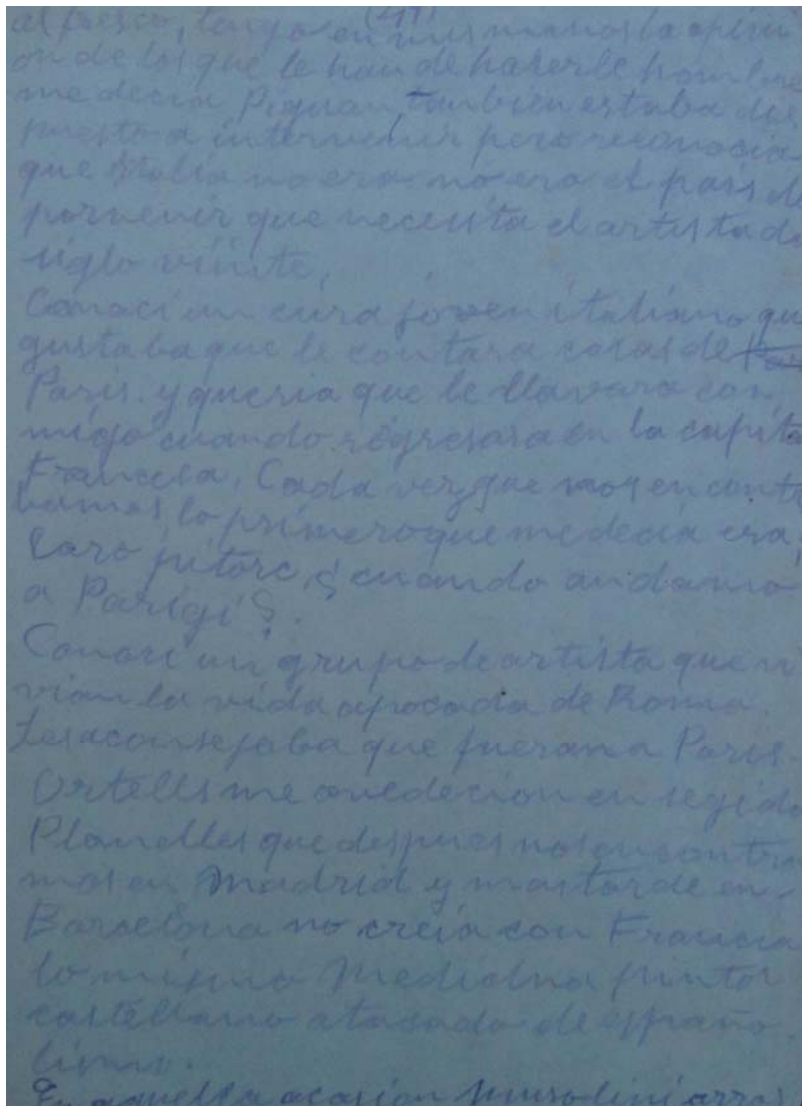 (41)
al fresco, tengo en mis manos la opini
on de los que le han de hacerle hombre
me decia Piguan, tambien estaba dis
puesto a intervenir pero reconocia
que Italia no era no era el pais de
porvenir que necesita el artista de
siglo viinte,
Conoci un cura joven italiano que
gustaba que le contara cosas de Par
Paris. y queria que le llavara con
migo cuando regresara en la capita
Francesa, Cada vez que nos encont
bamos lo primero que me decia era,
Caro pitore, ¿cuando andamo
a Parigi?.
Conoci un grupo de artista que vi
vian la vida apocada de Roma.
Les aconsejaba que fueran a Paris.
Ortells me ovedecion en segida
Planelles que despues nos encontra
mos en Madrid y mas tarde en
Barcelona no creia con Francia
lo mismo Medicina pintor
castellano atacado de españo
lismo.
En aquella ocasion musolini